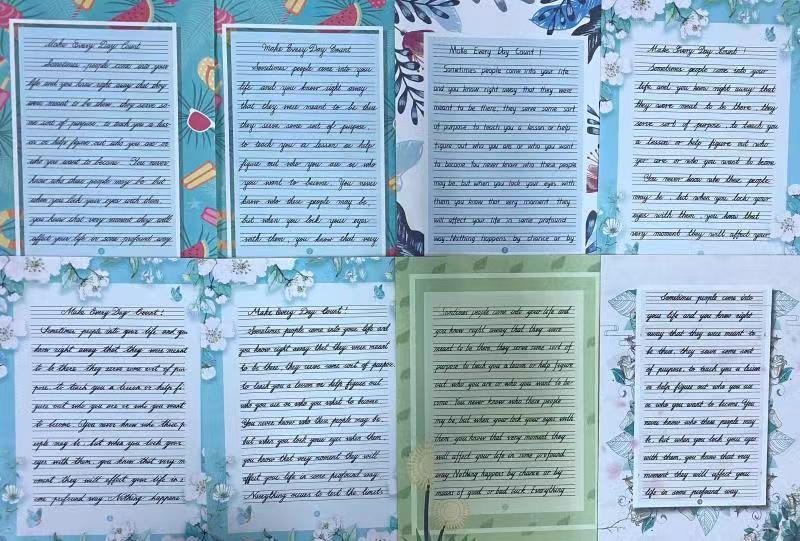 Make Every Day Count
Sometimes people come into your
life and you know right away that they
were meant to be there, they serve so-
me sort of purpose, to teach you a les-
on or help figure out who you are or
who you want to become. You never
know who these people may be but
when you lock your eyes with them,
you know that very moment they will
affect your life in some profound way.
Make Every Day Count
Sometimes people come into you
life and you know right away
that they were meant to be there
they serve some sort of purpose,
to teach you a lesson or help
figure out who you are or who
you want to become. You never
know who these people may be,
but when you lock your eyes
with them, you know that very
Make Every Day Count !
Sometimes people come into your life
and you know right away that they were
meant to be there, they serve some sort
of purpose to teach you a lesson or help
figure out who you are or who you want
to become. You never know who these people
may be, but when you lock your eyes with
them, you know that very moment they
will affect your life in some profound
way. Nothing happens by chance or by
Make Every Day Count !
Sometimes people come into your
life and you know right away that
they were meant to be there, they
serve sort of purpose, to teach you
a lesson or help figure out who
you are or who you want to become
You never know who these people
may be, but when you lock your
eyes with them, you know that
very moment they will affect your
Make Every Day Count !
Sometimes people into your life and you
know right away that they were meant
to be there they serve some sort of pur
pose, to teach you a lesson or help fi-
gure out who you are or who you want
to become. You never know who these p
eople may be, but when you lock your
eyes with them, you know that very m
oment they will affect your life in s
ome profound way. Nothing happens
Make Every Day Count !
Sometimes people come into your life and
you know right away that they were meant
to be there, they serve some sort of purpose,
to teach you a lesson or help figure out
who you are or who you what to become
You never know who these people may be,
but when you lock your eyes when them,
you know that very moment they will
affect your life in some profound way.
to test the limits
Sometimes people come into your life and
you know right away that they were
meant to be there, they serve some sort of
purpose to teach you a lesson or help figure
out who you are or who you want to be-
come. You never know who these people
may be, but when you lock your eyes with
them, you know that very moment they
will affect your life in some profound
way. Nothing happens by chance or by
mean of goal or bad luck. Everything
Sometimes people come into
your life and you know right
away that they were meant to
be there, they serve some sort
of purpose, to teach you a lesson
or help figure out who you are
or who you want to become. You
never know who these people may
be, but when you lock your eyes
with them, you know that very
moment they will affect your
life in some profound way.